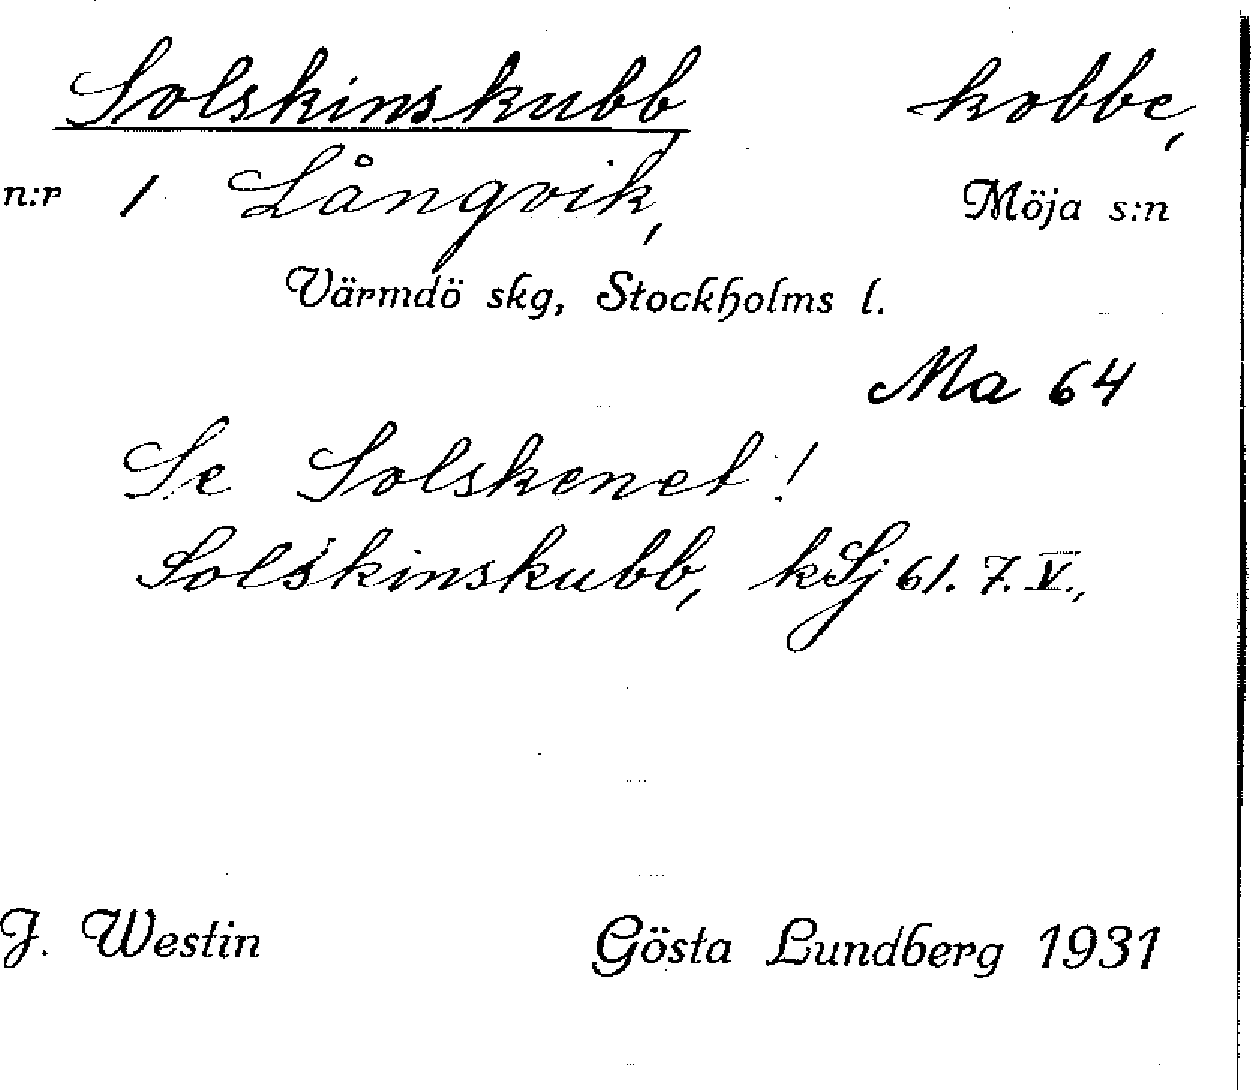 Solskinskubb kobbe,
n:r 1 Långvik, Möja s:n
Värmdö skg, Stockholms l.
Ma 64
Se Solskenet!
Solskinskubb, kSj 61. 7. V.,
J. Westin Gösta Lundberg 1931